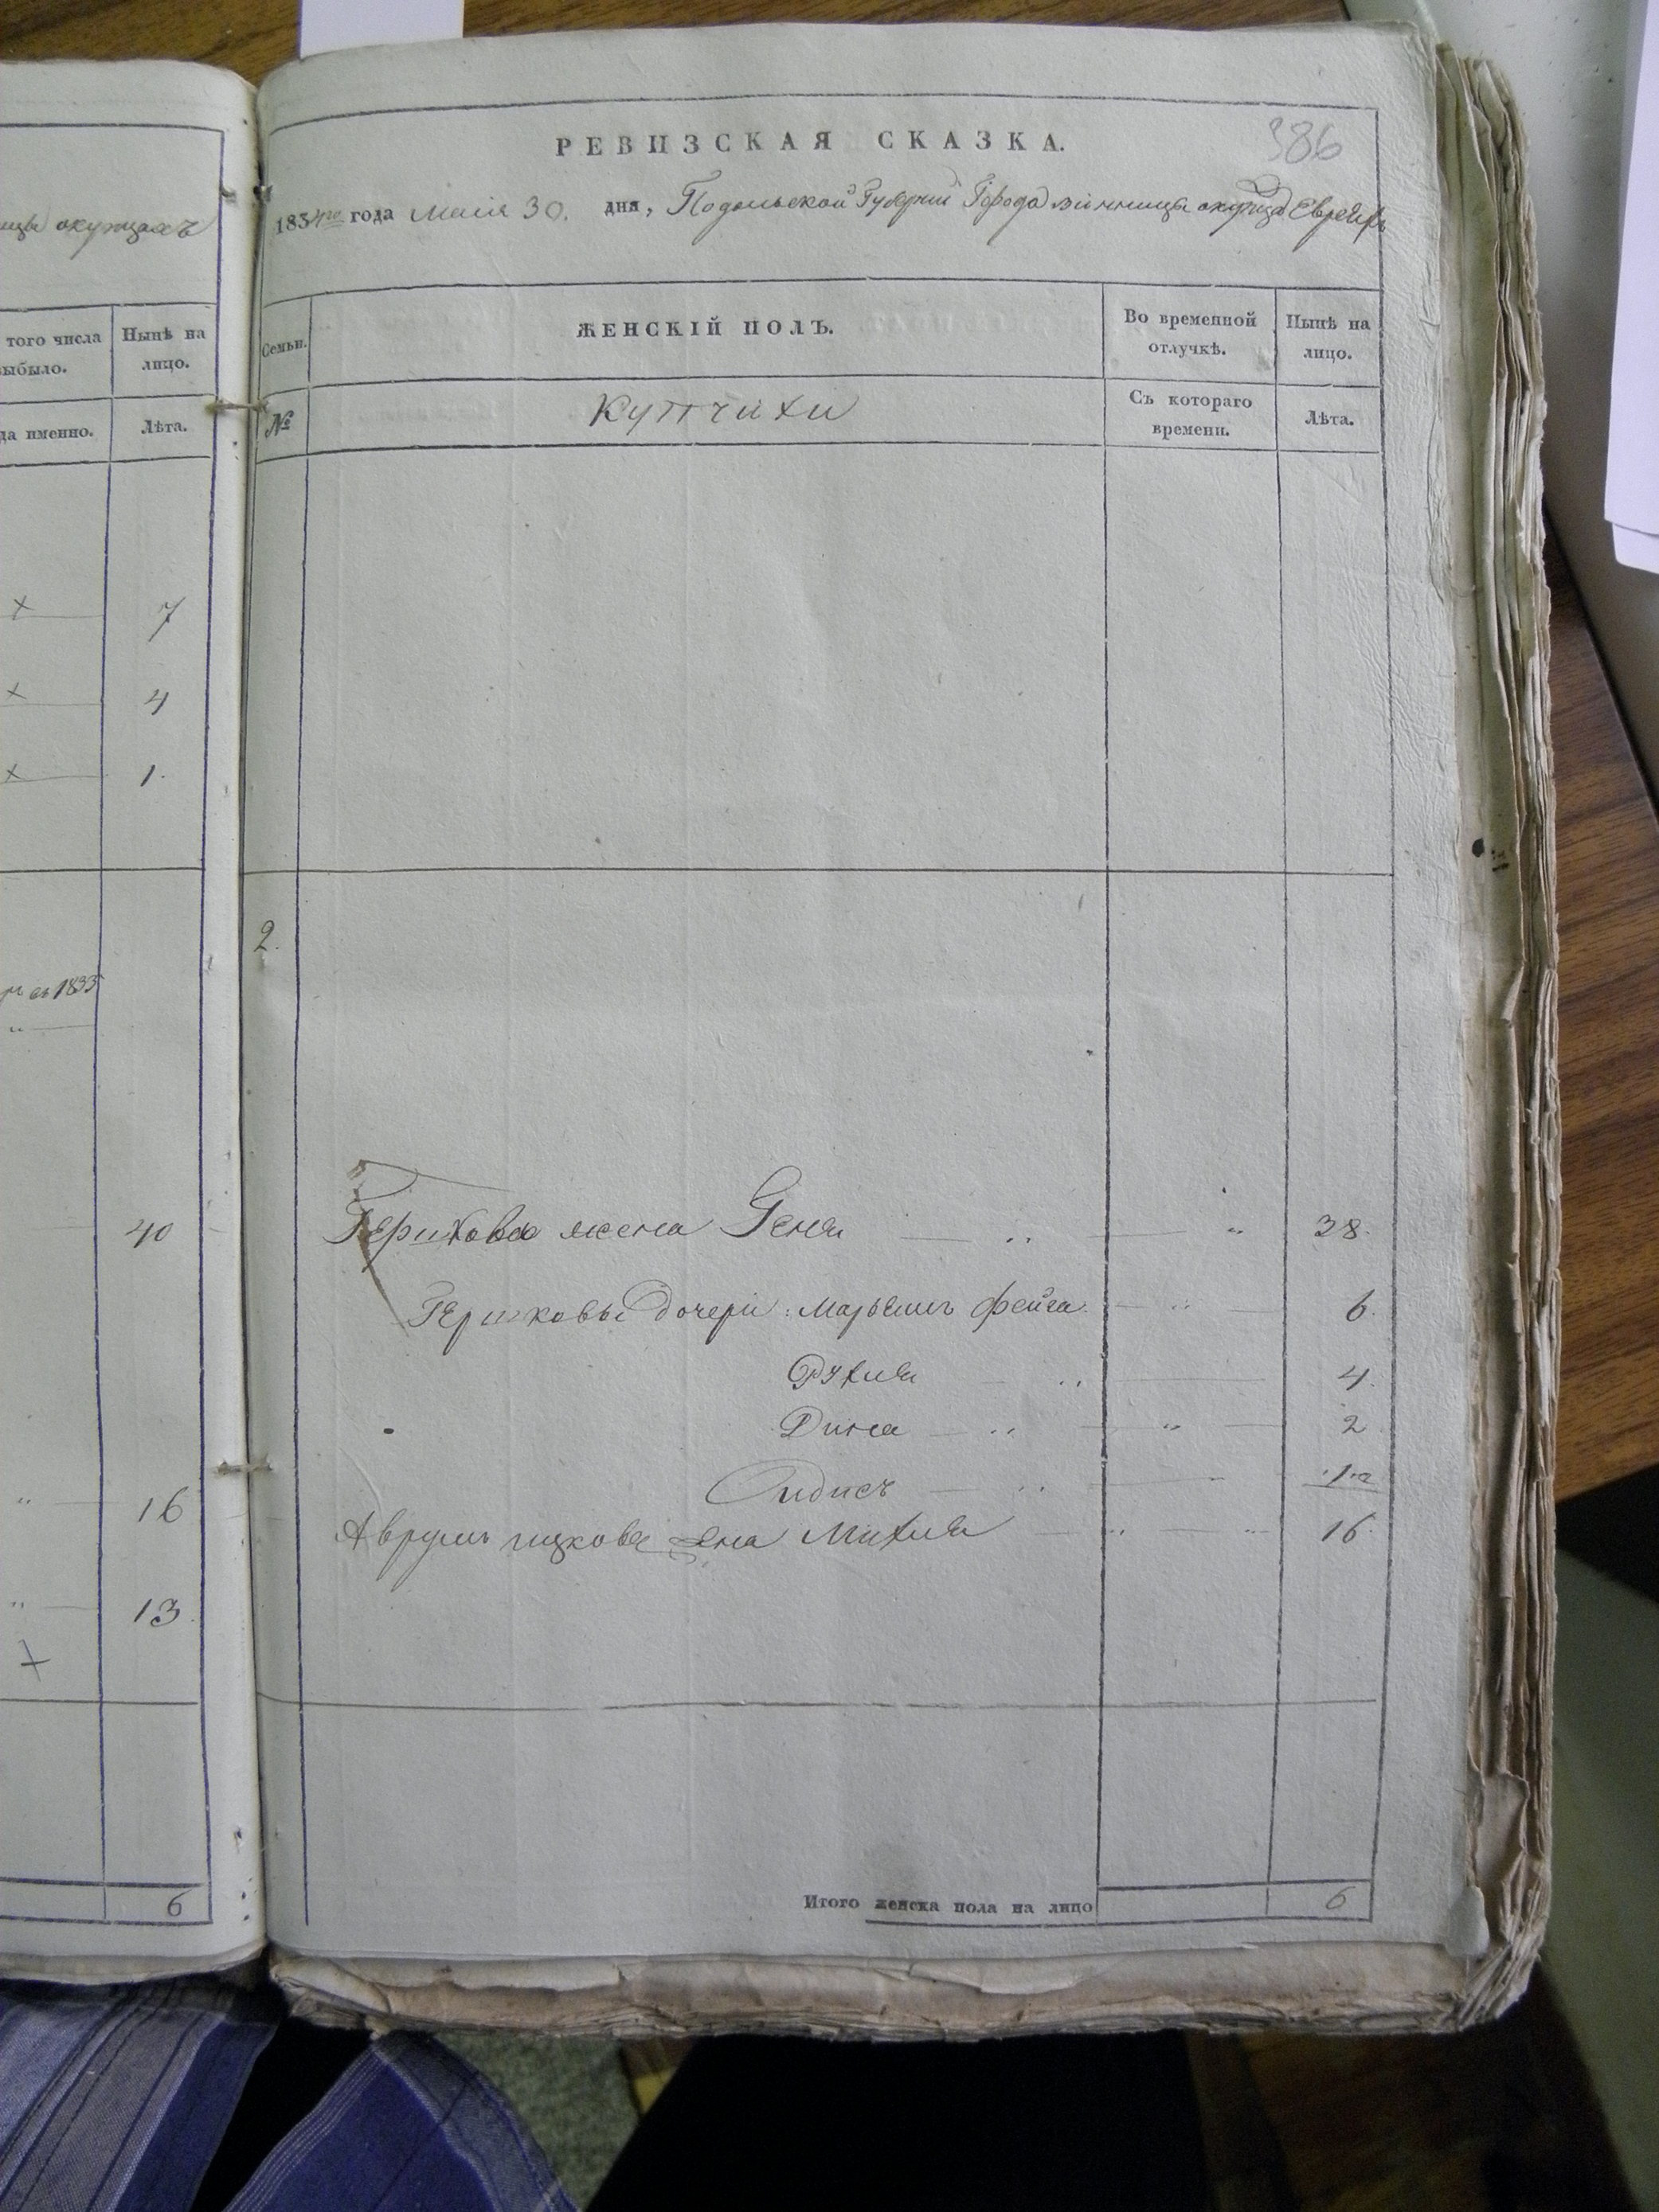 ицы окупцахъ
того числа
выбыло.
Нынѣ на
лицо.
да именно.
Лѣта.
7
4
1.
съ 1833
40
16
13
6
РЕВИЗСКАЯ СКАЗКА.
386
1834го года Маия 30. дня, Подольской Губерніи Города Винницы окупцахъ Евреяхъ
Семьи.
ЖЕНСКІЙ ПОЛЪ.
Во временной
отлучкѣ.
Нынѣ на
лицо.
№
Купчихи
Съ котораго
времени.
Лѣта.
2.
Гершкова жена Геня 38.
Гершковы дочери: Марьямъ Фейга 6.
Рухля 4.
Дина 2
1
Аврумъ ицкова жена Михля 16.
Итого женска пола на лицо 6